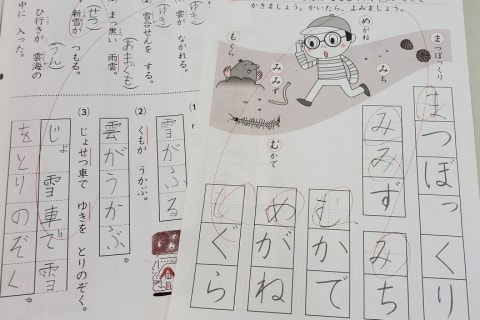 かきましょう。かいたら、よみましょう。
めがね
まつぼっくり
もぐら
みみず
みち
むかで
まつぼっくり
みみず
みち
むかで
めがね
もぐら
雲が ながれる。
雪がっせんを する。
まっ黒い 雨雲。
あまぐも
新雪が つもる。
せつ
ひ行きが 雲海の
うん
中に 入った。
(1
雪がふる
(2) くもが うかぶ。
雲がうかぶ。
(3) じょせつ車で ゆきを とりのぞく。
じょ雪車で雪
をとりのぞく。